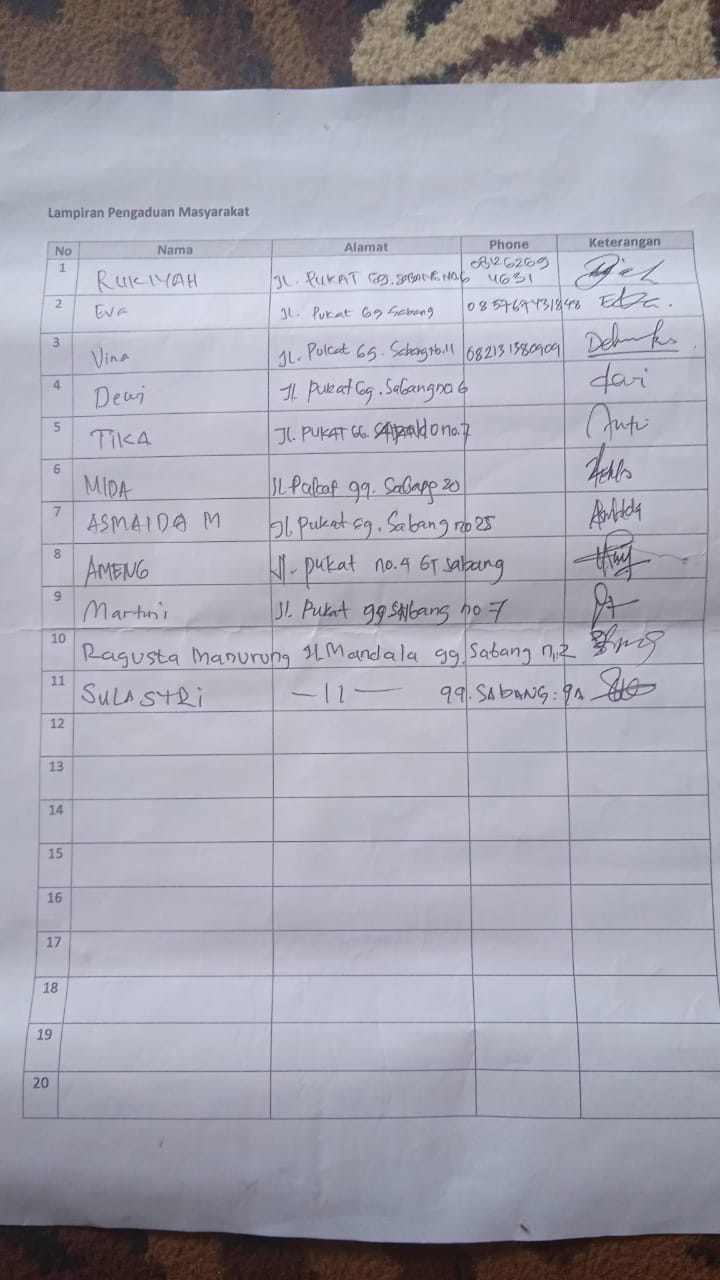 Lampiran Pengaduan Masyarakat
No Nama Alamat Phone Keterangan
1 RUKIYAH JL. PUKAT Gg. SABANG. NO.6 08126269 4631
2 Eva JL. Pukat Gg Sabang 085767431848
3 Vina JL. Pukat GG. Sabang no.11 082131380909
4 Dewi Jl. Pukat Gg. Sabang no 6
5 TIKA Jl. PUKAT GG. no.7
6 MIDA Jl gg. 20
7 ASMAIDA M Jl. Pukat Gg. Sabang no 25
8 AMENG Jl. pukat no.4 GT sabang
9 Martini Jl. Pukat gg Sabang no 7
10 Ragusta Manurung Jl Mandala gg. Sabang n,2
11 SULASTRi —11— gg. SAbANG: 9A
12
13
14
15
16
17
18
19
20